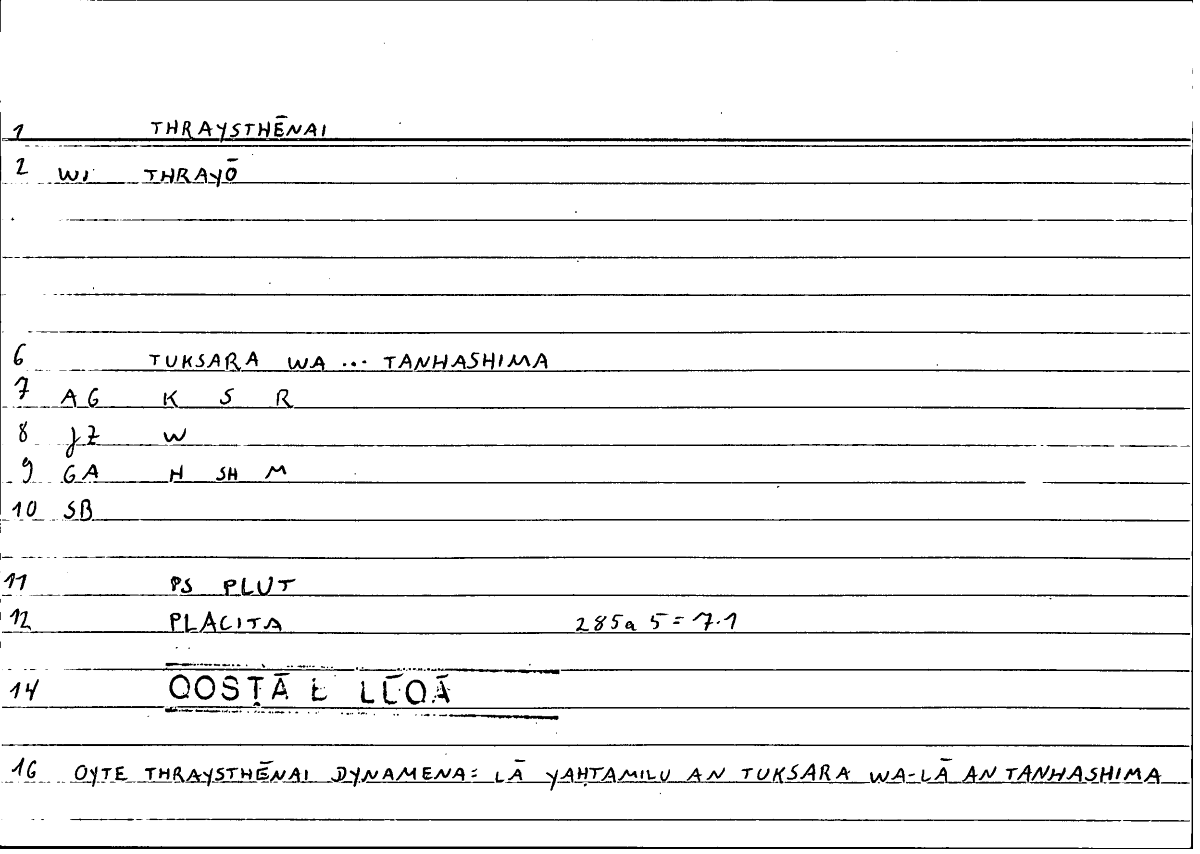 1 THRAYSTHĒNAI
2 WI THRAYŌ
6 TUKSARA WA ... TANHASHIMA
7 AG K S R
8 JZ W
9 GA H SH M
10 SB
11 PS PLUT
12 PLACITA 285a 5 = 7.1
14 QOSṬĀ
16 OYTE THRAYSTHĒNAI DYNAMENA = LĀ YAḤTAMILU AN TUKSARA WA-LĀ AN TANHASHIMA